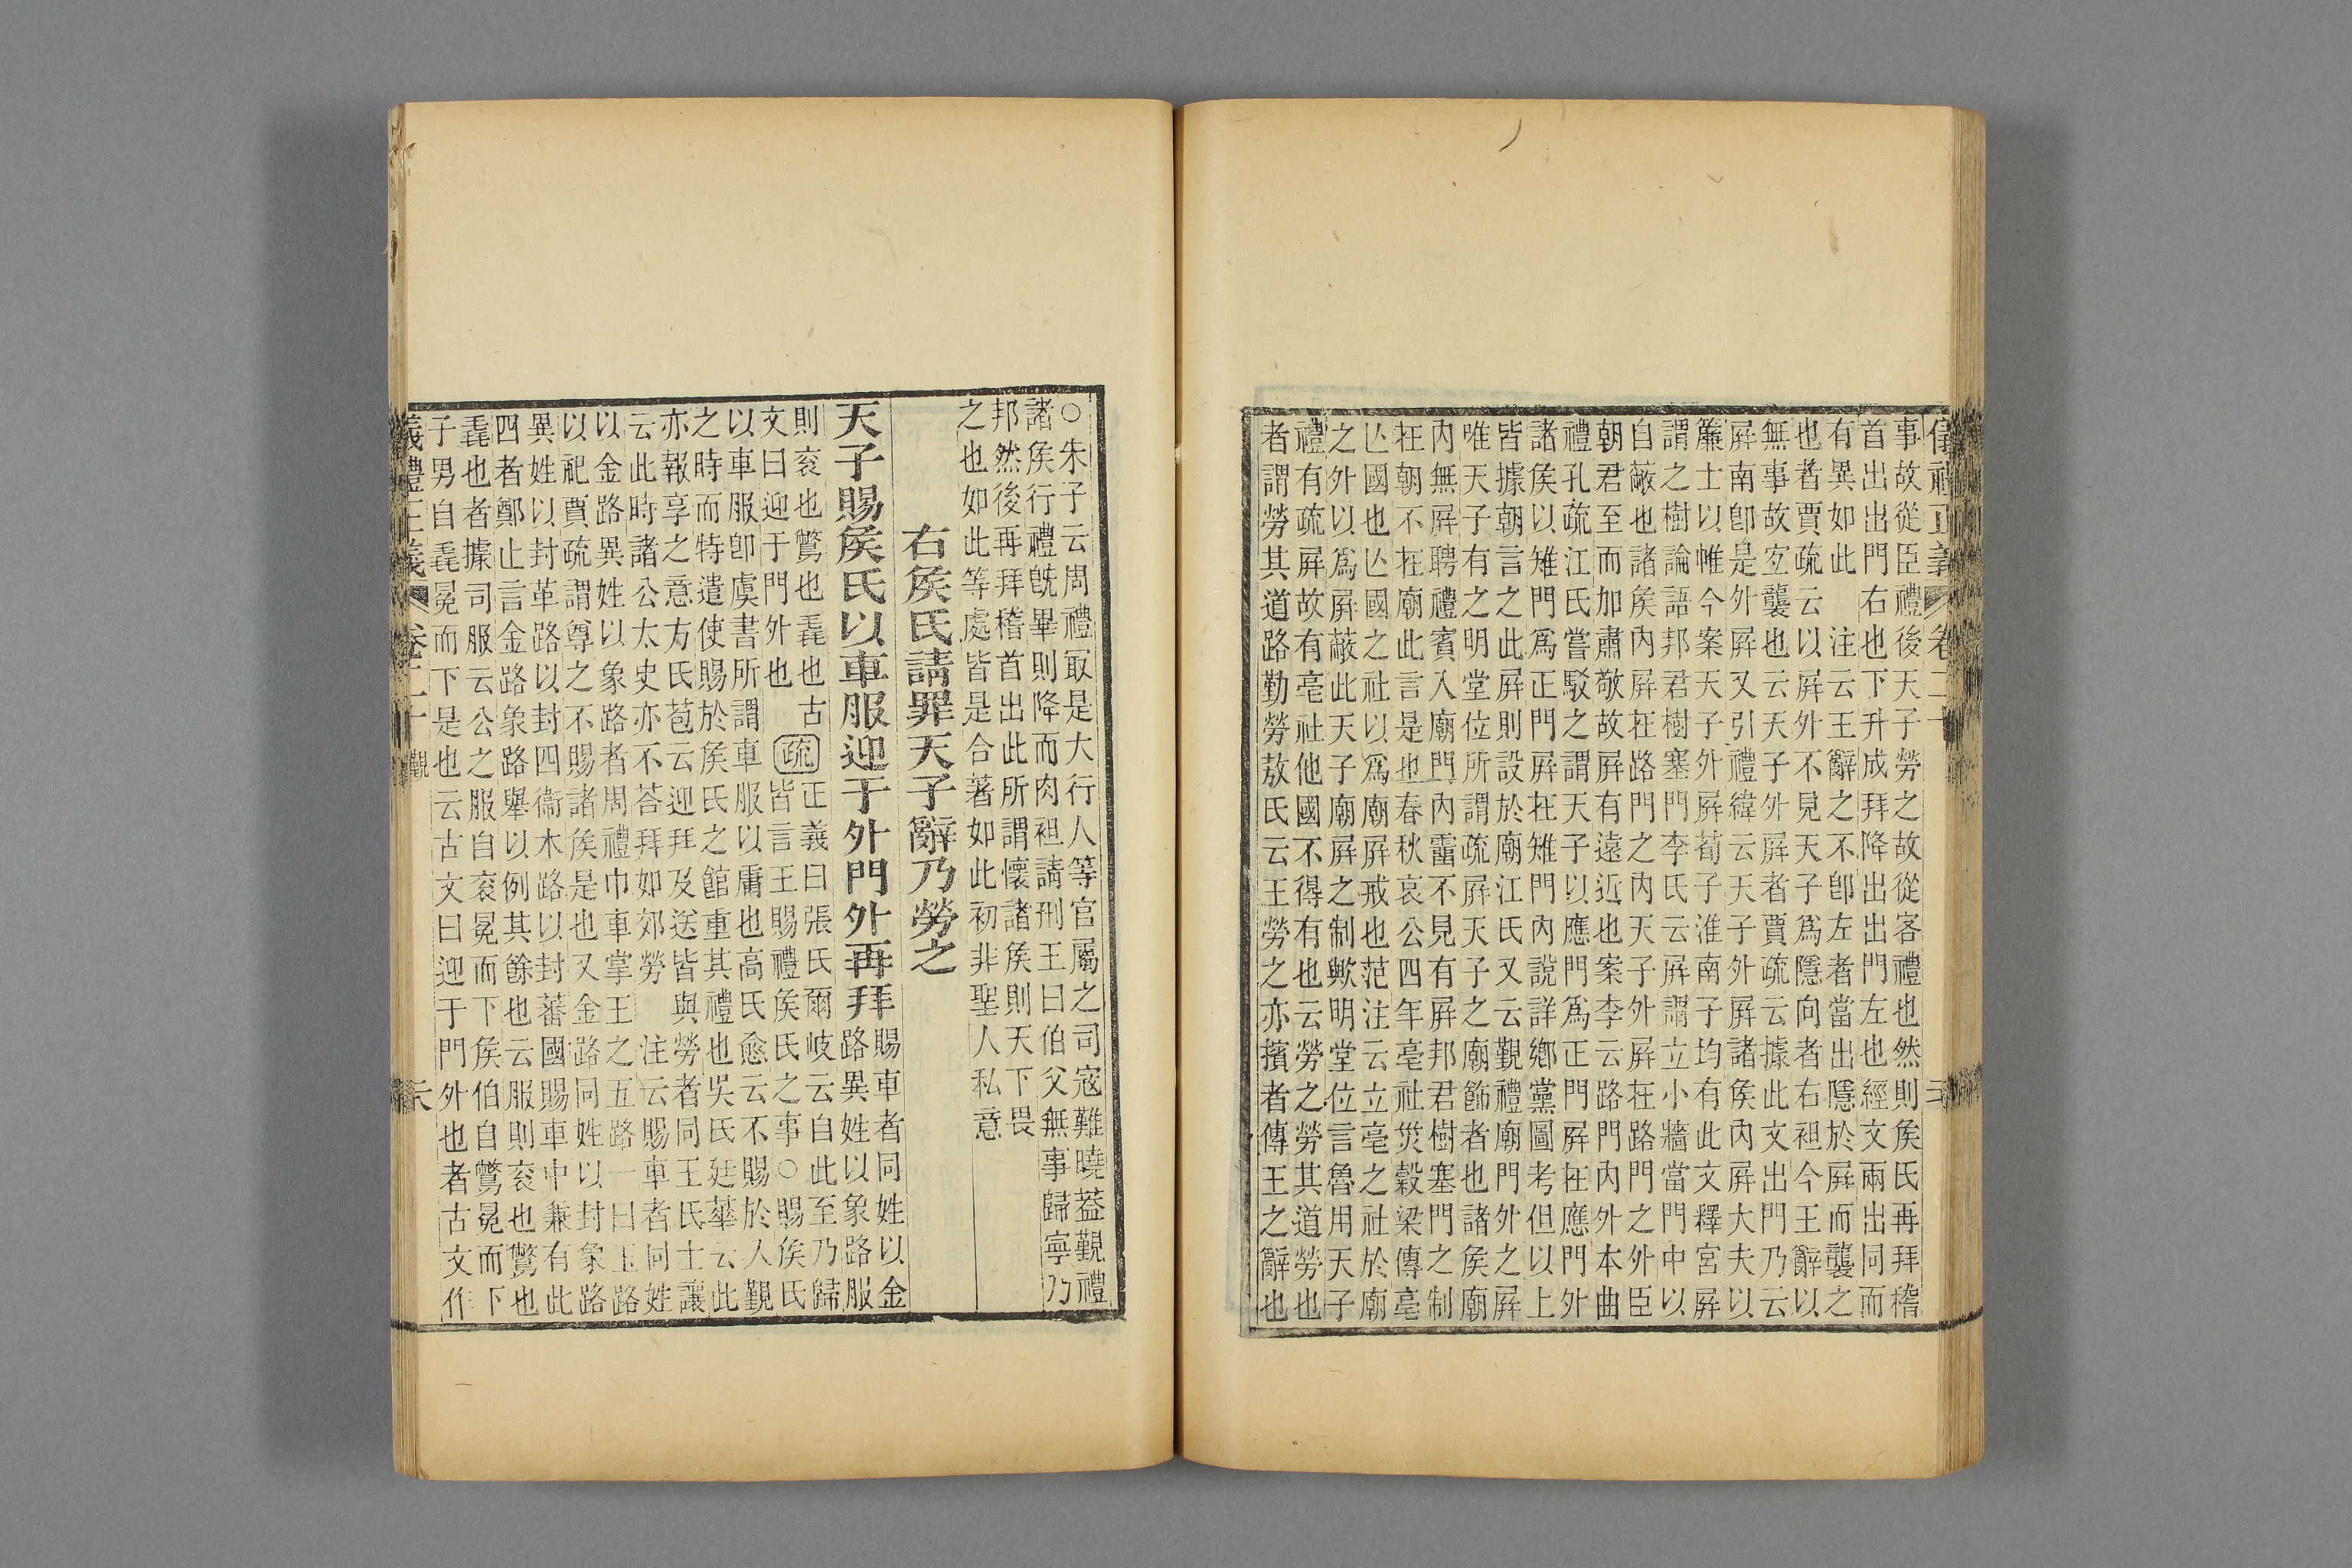 儀禮正義 卷二十
事故從臣禮後天子勞之故從客禮也然則矦氏再拜稽
首出出門右也下升成拜降出出門左也經文兩出同而
有異如此 注云王辭之不卽左者當出隱於屏而襲之
也者賈疏云以屏外不見天子爲隱向者右袒今王辭以
無事故宐襲也云天子外屏者賈疏云據此文出門乃云
屏南卽是外屏又引禮緯云天子外屏諸矦內屏大夫以
簾士以帷今案天子外屏荀子淮南子均有此文釋宮屏
謂之樹論語邦君樹塞門李氏云屏謂立小牆當門中以
自蔽也諸矦內屏在路門之內天子外屏在路門之外臣
朝君至而加肅敬故屏有遠近也案李云路門內外本曲
禮孔疏江氏嘗駁之謂天子以應門爲正門屏在應門外
諸矦以雉門爲正門屏在雉門內說詳鄉黨圖考但以上
皆據朝言之此屏則設於廟江氏又云覲禮廟門外之屏
唯天子有之明堂位所謂疏屏天子之廟飾者也諸矦廟
內無屏聘禮賓入廟門內霤不見有屏邦君樹塞門之制
在朝不在廟此言是也春秋哀公四年亳社災穀梁傳亳
亾國也亾國之社以爲廟屏戒也范注云立亳之社於廟
之外以爲屏蔽此天子廟屏之制歟明堂位言魯用天子
禮有疏屏故有亳社他國不得有也云勞之勞其道勞也
者謂勞其道路勤勞敖氏云王勞之亦擯者傳王之辭也
○朱子云周禮冣是大行人等官屬之司寇難曉葢覲禮
諸矦行禮旣畢則降而肉袒請刑王曰伯父無事歸寧乃
邦然後再拜稽首出此所謂懷諸矦則天下畏
之也如此等處皆是合著如此初非聖人私意
右矦氏請罪天子辭乃勞之
天子賜矦氏以車服迎于外門外再拜 賜車者同姓以金
路異姓以象路服
則衮也鷩也毳也古
文曰迎于門外也
疏 正義曰張氏爾岐云自此至乃歸
皆言王賜禮矦氏之事○賜矦氏
以車服卽虞書所謂車服以庸也高氏愈云不賜於人覲
之時而特遣使賜於矦氏之館重其禮也吳氏廷華云此
亦報享之意方氏苞云迎拜及送皆與勞者同王氏士讓
云此時諸公太史亦不荅拜如郊勞 注云賜車者同姓
以金路異姓以象路者周禮巾車掌王之五路一曰玉路
以祀賈疏謂尊之不賜諸矦是也又金路同姓以封象路
異姓以封革路以封四衞木路以封蕃國賜車中兼有此
四者鄭止言金路象路舉以例其餘也云服則衮也鷩也
毳也者據司服云公之服自衮冕而下矦伯自鷩冕而下
子男自毳冕而下是也云古文曰迎于門外也者古文作
義禮正義 卷二十 覲